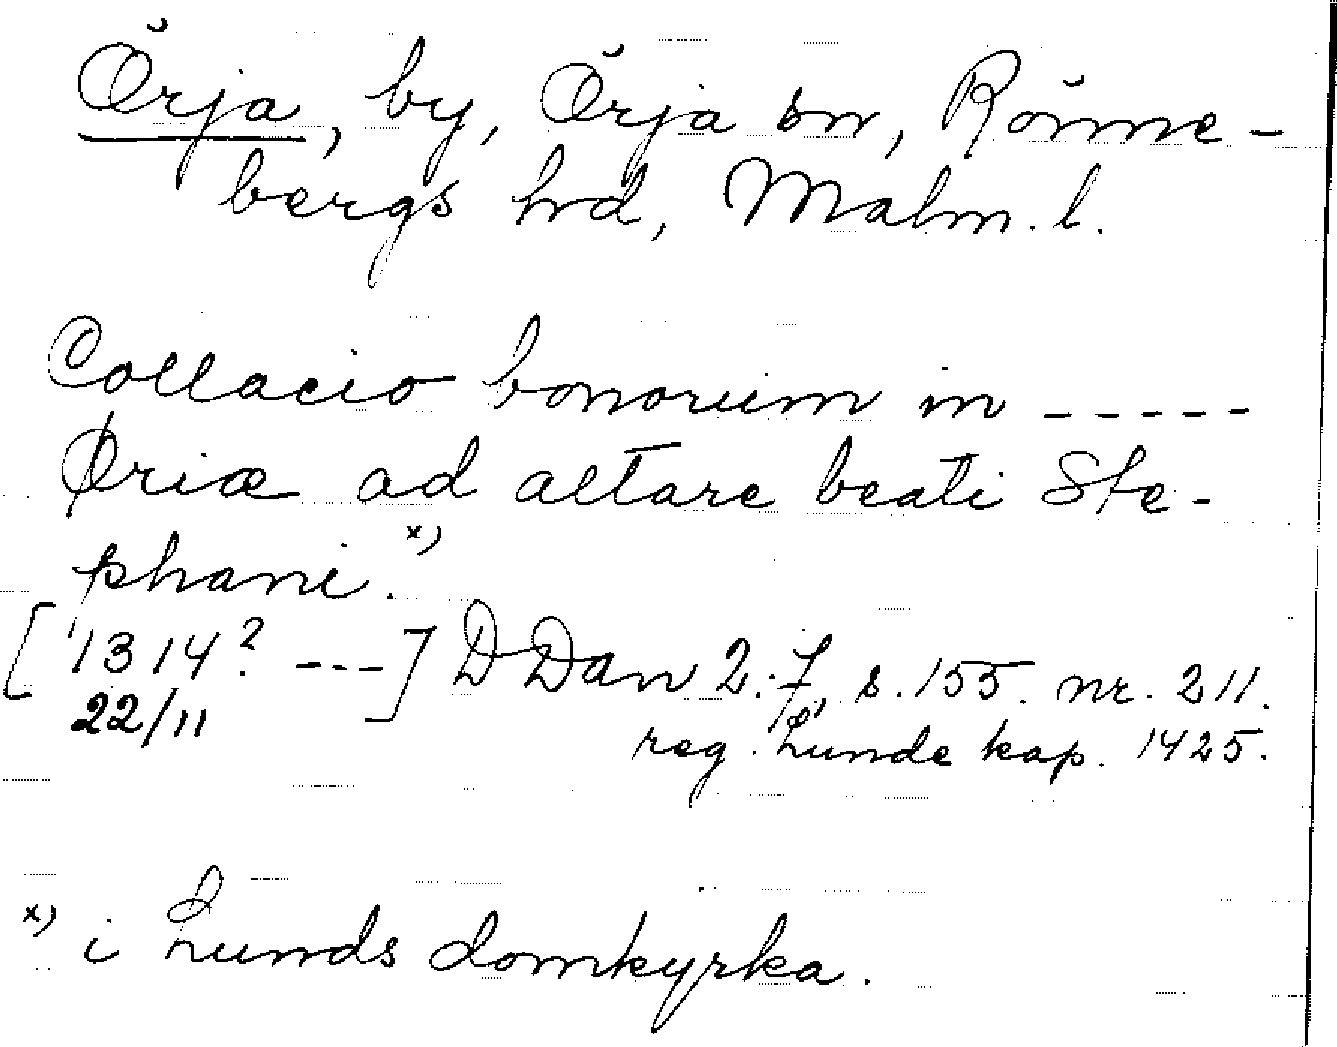 Örja, by, Örja sn, Rönne-
bergs hd, Malm. l.
Collacio bonorum in -----
Øriæ ad altare beati Ste-
phani. x)
[1314? ---] DDan 2:7, s. 155. nr. 211.
22/11
reg. Lunde kap. 1425.
x) i Lunds domkyrka.